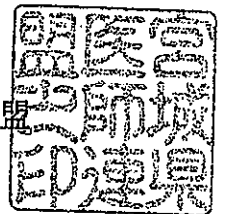 盟
宮城県
医師連
盟之印